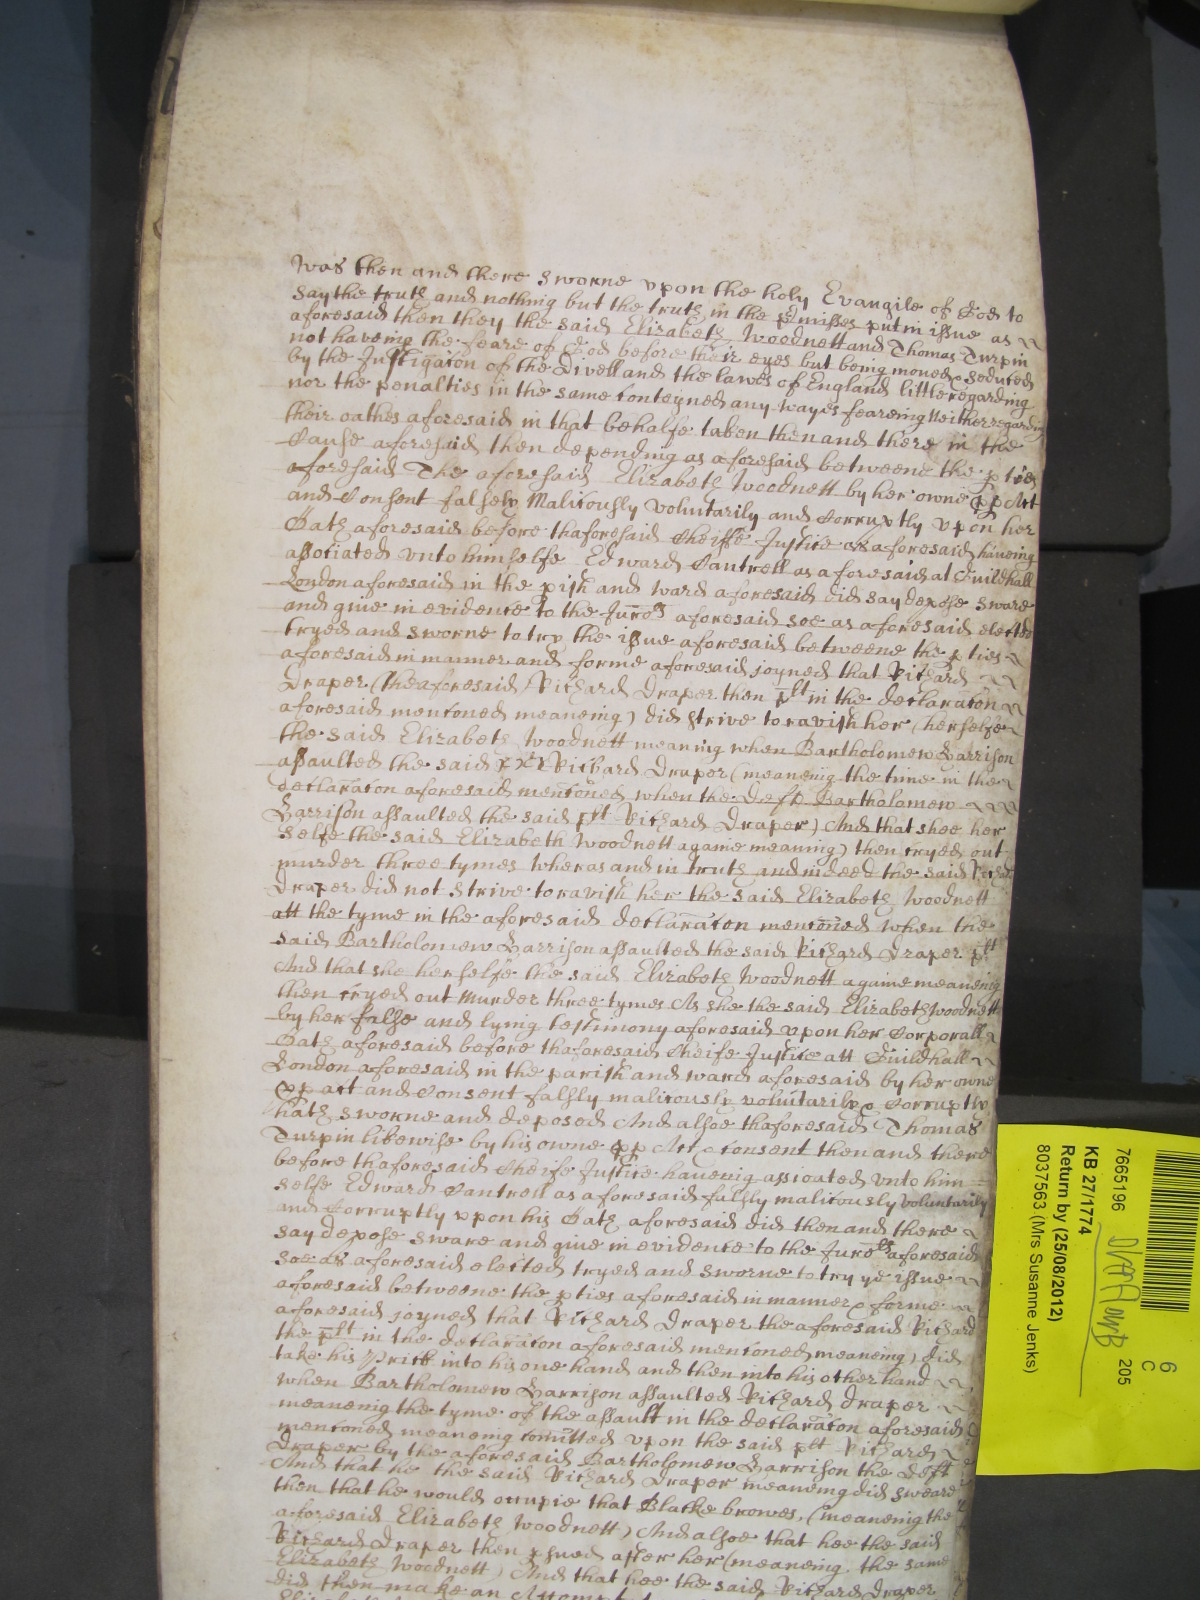 was then and there sworne vpon the holy Evangile of God to
say the truth and nothing but the truth in the p̄misses put in issue as
aforesaid then they the said Elizabeth Woodnett and Thomas Turpin
not haveing the feare of God before their eyes but being moued & seduced
by the Instigac̄on of the Divell and the lawes of England litle regarding
nor the penalties in the same conteyned any wayes feareing Neither regarding
their oathes aforesaid in that behalfe taken then and there in the
Cause aforesaid then depending as aforesaid betweene the pties
aforesaid The aforesaid Elizabeth Woodnett by her owne pp Act
and Consent falsely Malitously voluntarily and Corruptly vpon her
Oath aforesaid before thaforesaid Cheiffe Justice as aforesaid haueing
assotiated vnto himselfe Edward Cantrell as aforesaid at Guildhall
London aforesaid in the pish and ward aforesaid did say depose sware
and giue in evidence to the Juro^rs aforesaid soe as aforesaid elected
tryed and sworne to try the issue aforesaid betweene the pties
aforesaid in manner and forme aforesaid joyned that Richard
Draper (the aforesaid Richard Draper then plt in the declarac̄on
aforesaid menc̄oned meaneing) did strive to ravish her (herselfe
the said Elizabeth Woodnett meaning when Bartholomew Harrison
assaulted the said x x x Richard Draper (meaneing the time in the
declarac̄on aforesaid menc̄oned when the Deft Bartholomew
Harrison assaulted the said plt Richard Draper) And that shee her
selfe the said Elizabeth Woodnett againe meaneing) then cryed out
murder three tymes wheras and in truth and indeed the said Richard
Draper did not strive to ravish her the said Elizabeth Woodnett
att the tyme in the aforesaid declarac̄on menc̄oned when the
said Bartholomew Harrison assaulted the said Richard Draper plt
And that she herselfe the said Elizabeth Woodnett againe meaneing
then cryed out Murder three tymes As she the said Elizabeth Woodnett
by her false and lying testimony aforesaid vpon her Corporall
Oath aforesaid before thaforesaid Cheife Justice att Guildhall
London aforesaid in the parish and ward aforesaid by her owne
pp act and Consent falsly malitously voluntarily & Corruptly
hath sworne and deposed And alsoe thaforesaid Thomas
Turpin likewise by his owne pp Act & consent then and there
before thaforesaid Cheife Justice haueing assotiated vnto him
selfe Edward Cantrell as aforesaid falsly malitously voluntarily
and Corruptly vpon his Oath aforesaid did then and there
say depose sware and giue in evidence to the Juro^rs aforesaid
soe as aforesaid elected tryed and sworne to try ye issue
aforesaid betweene the pties aforesaid in manner & forme
aforesaid joyned that Richard Draper the aforesaid Richard
the plt in the declarac̄on aforesaid menc̄oned meaneing) did
take his Prick into his one hand and then into his other hand
when Bartholomew Harrison assaulted Richard Draper
meaneing the tyme of the assault in the declarac̄on aforesaid
menc̄oned meaneing com̄itted vpon the said plt Richard
Draper by the aforesaid Bartholomew Harrison the Deft
And that he the said Richard Draper meaneing did sweare
then that he would occupie that Blacke browes, (meaneing the
aforesaid Elizabeth Woodnett) And alsoe that hee the said
Richard Draper then psued after her (meaneing the same
Elizabeth Woodnett) And that hee the said Richard Draper
did then make an Attempt
7665196
KB 27/1774
Return by (25/08/2012)
8037563 (Mrs Susanne Jenks)
6
C
205